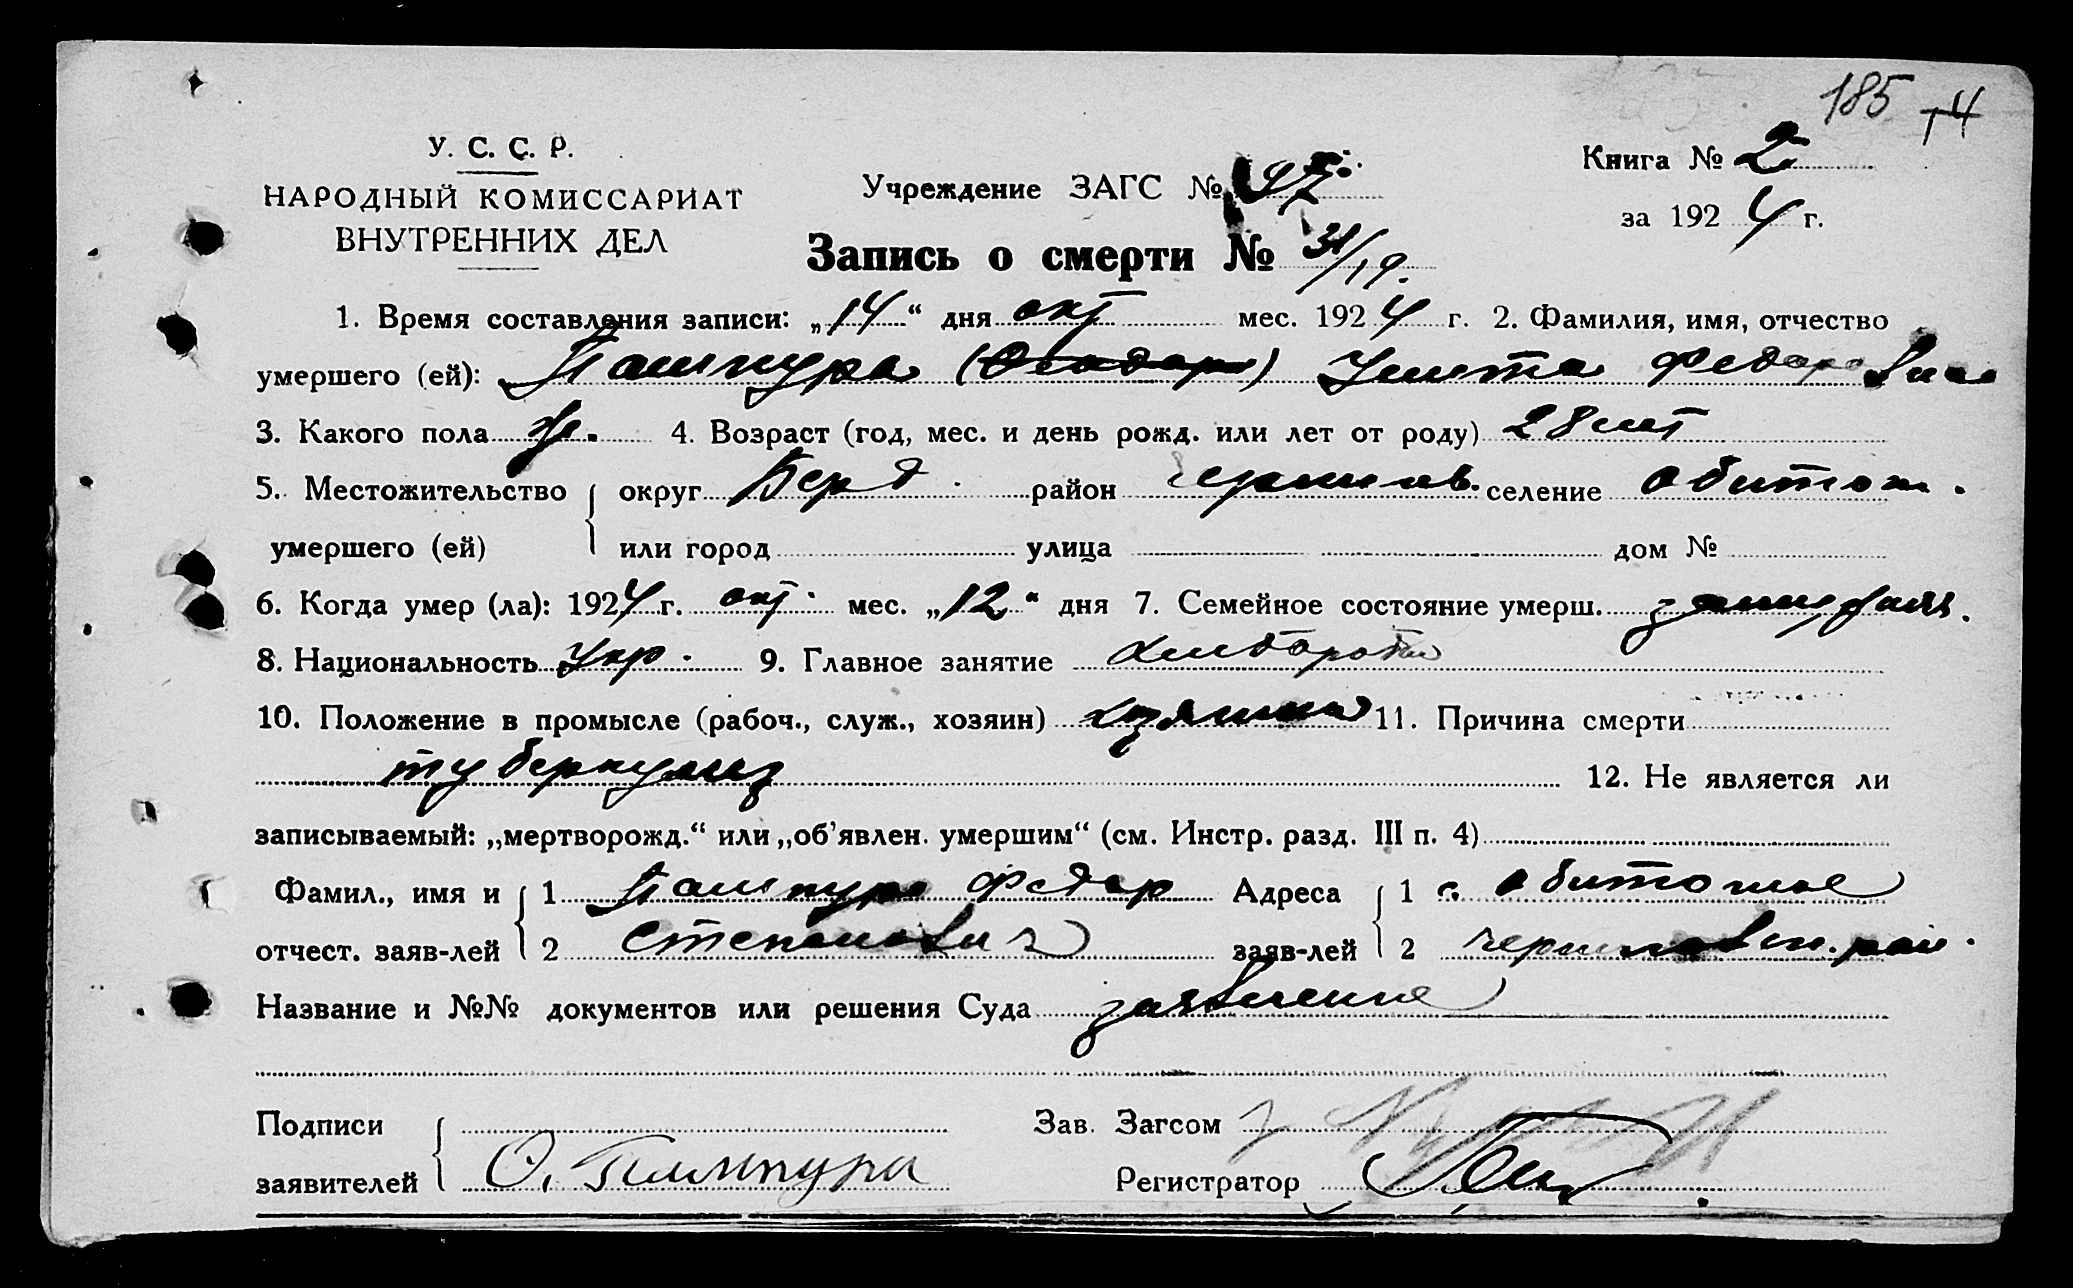 185 T4
У. С. С. Р.
НАРОДНЫЙ КОМИССАРИАТ
ВНУТРЕННИХ ДЕЛ
Учреждение ЗАГС №
Книга № 2
за 1924 г.
Запись о смерти № 31/19.
1. Время составления записи: „14“ дня окт мес. 1924 г. 2. Фамилия, имя, отчество
умершего (ей): Пашкура Федоровна
3. Какого пола ж. 4. Возраст (год, мес. и день рожд. или лет от роду) 28 лет
5. Местожительство округ Берд район Чернигов. селение Обиточн.
умершего (ей) или город улица дом №
6. Когда умер (ла): 1924 г. окт. мес. „12“ дня 7. Семейное состояние умерш. замужняя.
8. Национальность Укр. 9. Главное занятие хлебороб
10. Положение в промысле (рабоч., служ., хозяин) хозяйка 11. Причина смерти
туберкулез 12. Не является ли
записываемый: „мертворожд.“ или „об'явлен. умершим“ (см. Инстр. разд. III п. 4)
Фамил., имя и 1 Пашкура Федор Адреса 1 с. Обиточное
отчест. заяв-лей 2 Степанович заяв-лей 2 Черниговск. рай.
Название и №№ документов или решения Суда заявление
Подписи Зав. Загсом
заявителей Регистратор